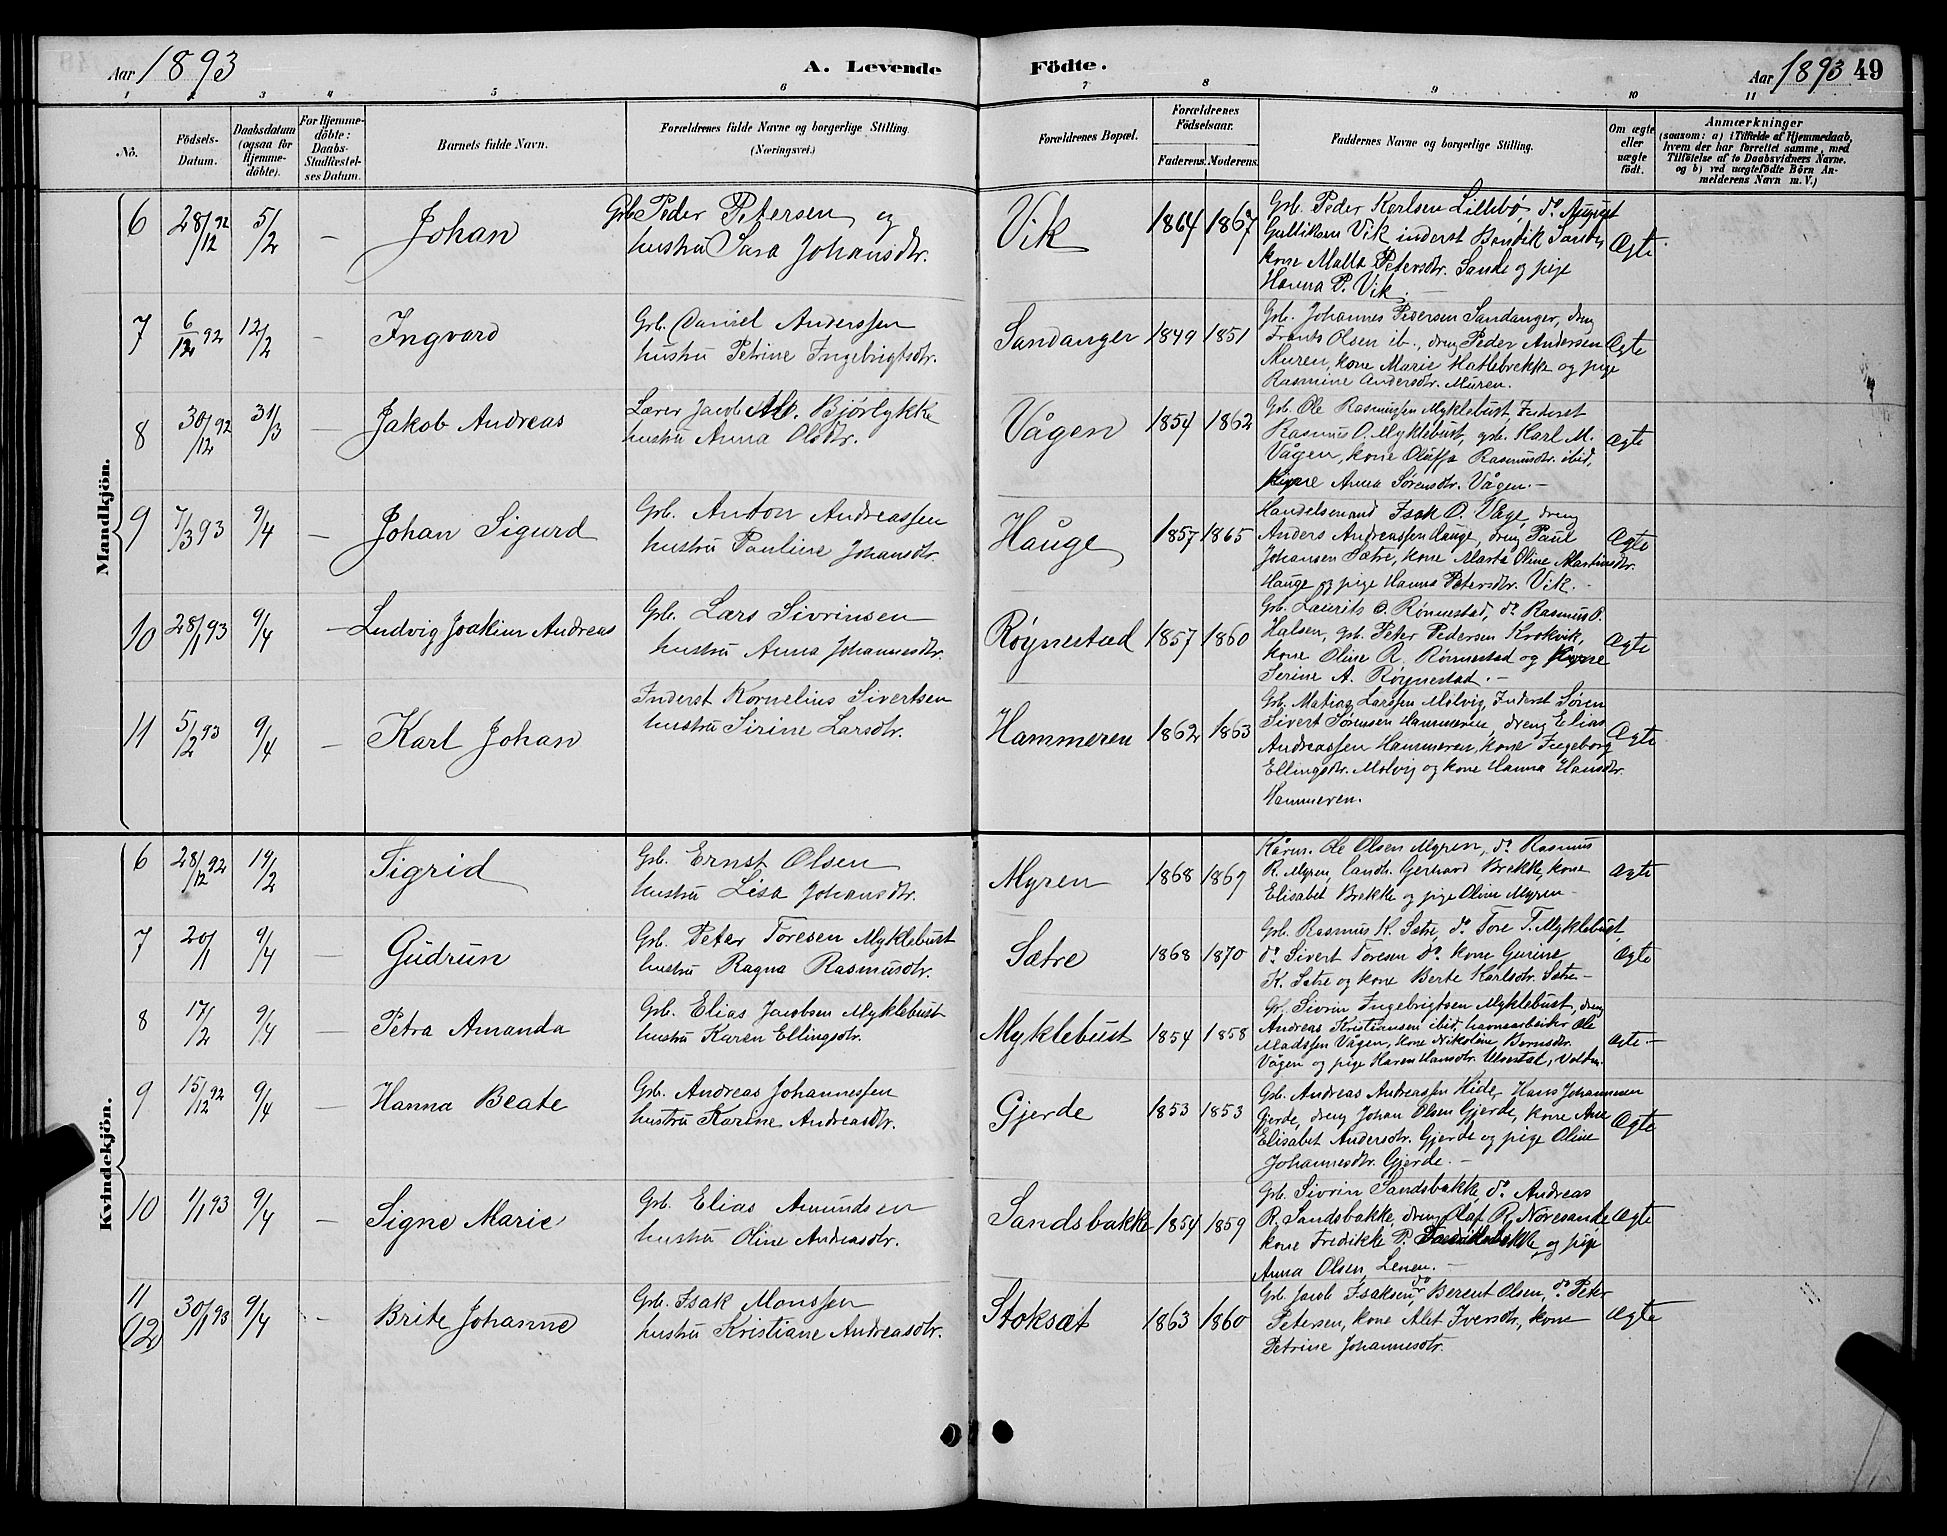 Aar 1893
A. Levende Födte.
Aar 1893 49
1 2 3 4 5 6 7 8 9 10 11
No.
Födsels-Datum.
Daabsdatum (ogsaa for Hjemmedöbte).
For Hjemmedöbte: Daabs-Stadfæstelses Datum.
Barnets fulde Navn.
Forældrenes fulde Navne og borgerlige Stilling.
(Næringsvei.)
Forældrenes Bopæl.
Forældrenes Födselsaar.
Faderens. Moderens.
Faddernes Navne og borgerlige Stilling.
Om ægte eller uægte födt.
Anmærkninger
(saasom: a) i Tilfælde af Hjemmedaab,
hvem der har forrettet samme, med
Tilföielse af to Daabsvidners Navne.
og b) ved uægtefödte Börn An-
melderens Navn m. V.)
Mandkjön.
6 28/12 92 5/2 — Johan
Grb. Peder Petersen og
hustru Sara Johansdtr.
Vik 1864 1867
Grb. Peder Karlsen Lillebø, do August
Gulliksen Vik inderst Bendik Sande,
kone Malla Petersdtr. Sande og pige
Hanna P. Vik.
Ægte
7 6/12 92 12/2 — Ingvard
Grb. Daniel Anderssen
hustru Petrine Ingebrigtsdtr.
Sandanger 1849 1851
Grb. Johannes Pedersen Sandanger, dreng
Frants Olsen ib., dreng Peder Andersen
Muren, kone Marie Hatlebrekke og pige
Rasmine Andersdtr. Muren.
Ægte
8 30/12 92 31/3 — Jakob Andreas
Lærer Jacob Bjørlykke
hustru Anna Olsdtr.
Vågen 1854 1862
Grb. Ole Rasmussen Myklebust, Inderst
Rasmus O. Myklebust, grb. Karl M.
Vågen, kone Oluffa Rasmusdtr. ibid,
Anna Sørensdtr. Vågen.—
Ægte
9 7/3 93 9/4 — Johan Sigurd
Grb. Anton Andreassen
hustru Pauline Johansdtr.
Hauge 1857 1865
Handelsmand Isak O. Våge, dreng
Anders Andreassen Hauge, dreng Paul
Johansen Sætre, kone Marta Oline Martinsdtr.
Hauge og pige Hanna Petersdtr. Vik.—
Ægte
10 28/1 93 9/4 — Ludvig Joakim Andreas
Grb. Lars Sivrinsen
hustru Anna Johannesdtr.
Røynestad 1857 1860
Grb. Laurits O. Rønnestad, do Rasmus P.
Halsen, grb. Peter Pedersen Krokvik,
kone Oline R. Rønnestad og
Serine A. Røynestad.—
Ægte
11 5/2 93 9/4 — Karl Johan
Inderst Kornelius Sivertsen
hustru Sirine Larsdtr.
Hammeren 1862 1863
Grb. Matias Larssen Molvig, Inderst Søren
Sivert Sørensen Hammeren, dreng Elias
Andreassen Hammeren, kone Ingeborg
Ellingsdtr. Molvig og kone Hanna Hansdtr.
Hammeren.
Ægte
Kvindekjön.
6 28/12 92 19/2 — Sigrid
Grb. Ernst Olsen
hustru Lisa Johansdtr.
Myren 1868 1869
Kårm. Ole Olsen Myren, do Rasmus
R. Myren, landh. Gerhard Brekke, kone
Elisabet Brekke og pige Oline Myren—
Ægte
7 20/1 9/4 — Gudrun
Grb. Peter Toresen Myklebust
hustru Ragna Rasmusdtr.
Sætre 1868 1870
Grb. Rasmus K. Sætre, do Tore T. Myklebust,
do Sivert Toresen do, kone Gurine
K. Sætre og kone Berte Karlsdtr. Sætre—
Ægte
8 17/2 9/4 — Petra Amanda
Grb. Elias Jacobsen Myklebust
hustru Karen Ellingsdtr.
Myklebust 1854 1858
Gr. Sivrin Ingebrigtsen Myklebust, dreng
Andreas Kristiansen ibid, havnearbeider Ole
Madssen Vågen, kone Nikoline Berntsdtr.
Vågen og pige Karen Hansdtr. Ulvestad, Volden.
Ægte—
9 15/12 92 9/4 — Hanna Beate
Grb. Andreas Johannessen
hustru Karine Andreasdtr.
Gjerde 1853 1853
Grb. Andreas Andreassen Hide, Hans Johannesen
Gjerde, dreng Johan Olsen Gjerde, kone Ane
Elisabet Andersdtr. Gjerde og pige Oline
Johannesdtr. Gjerde.—
Ægte
10 1/1 93 9/4 — Signe Marie
Grb. Elias Amundsen
hustru Oline Andreasdtr.
Sandsbakke 1854 1859
Grb. Sivrin Sandsbakke, do Andreas
R. Sandsbakke, dreng Olaf R. Nøresande
kone Fredikke P. og pige
Anna Olsen, Lenen.—
Ægte
11 (12) 30/1 93 9/4 — Brite Johanne
Grb. Isak Monssen
hustru Kristiane Andreasdtr.
Stoksæt 1863 1860
Grb. Jacob Isaksen, do Berent Olsen, do Peter
Petersen, kone Alet Iversdtr., kone
Petrine Johannesdtr.
Ægte